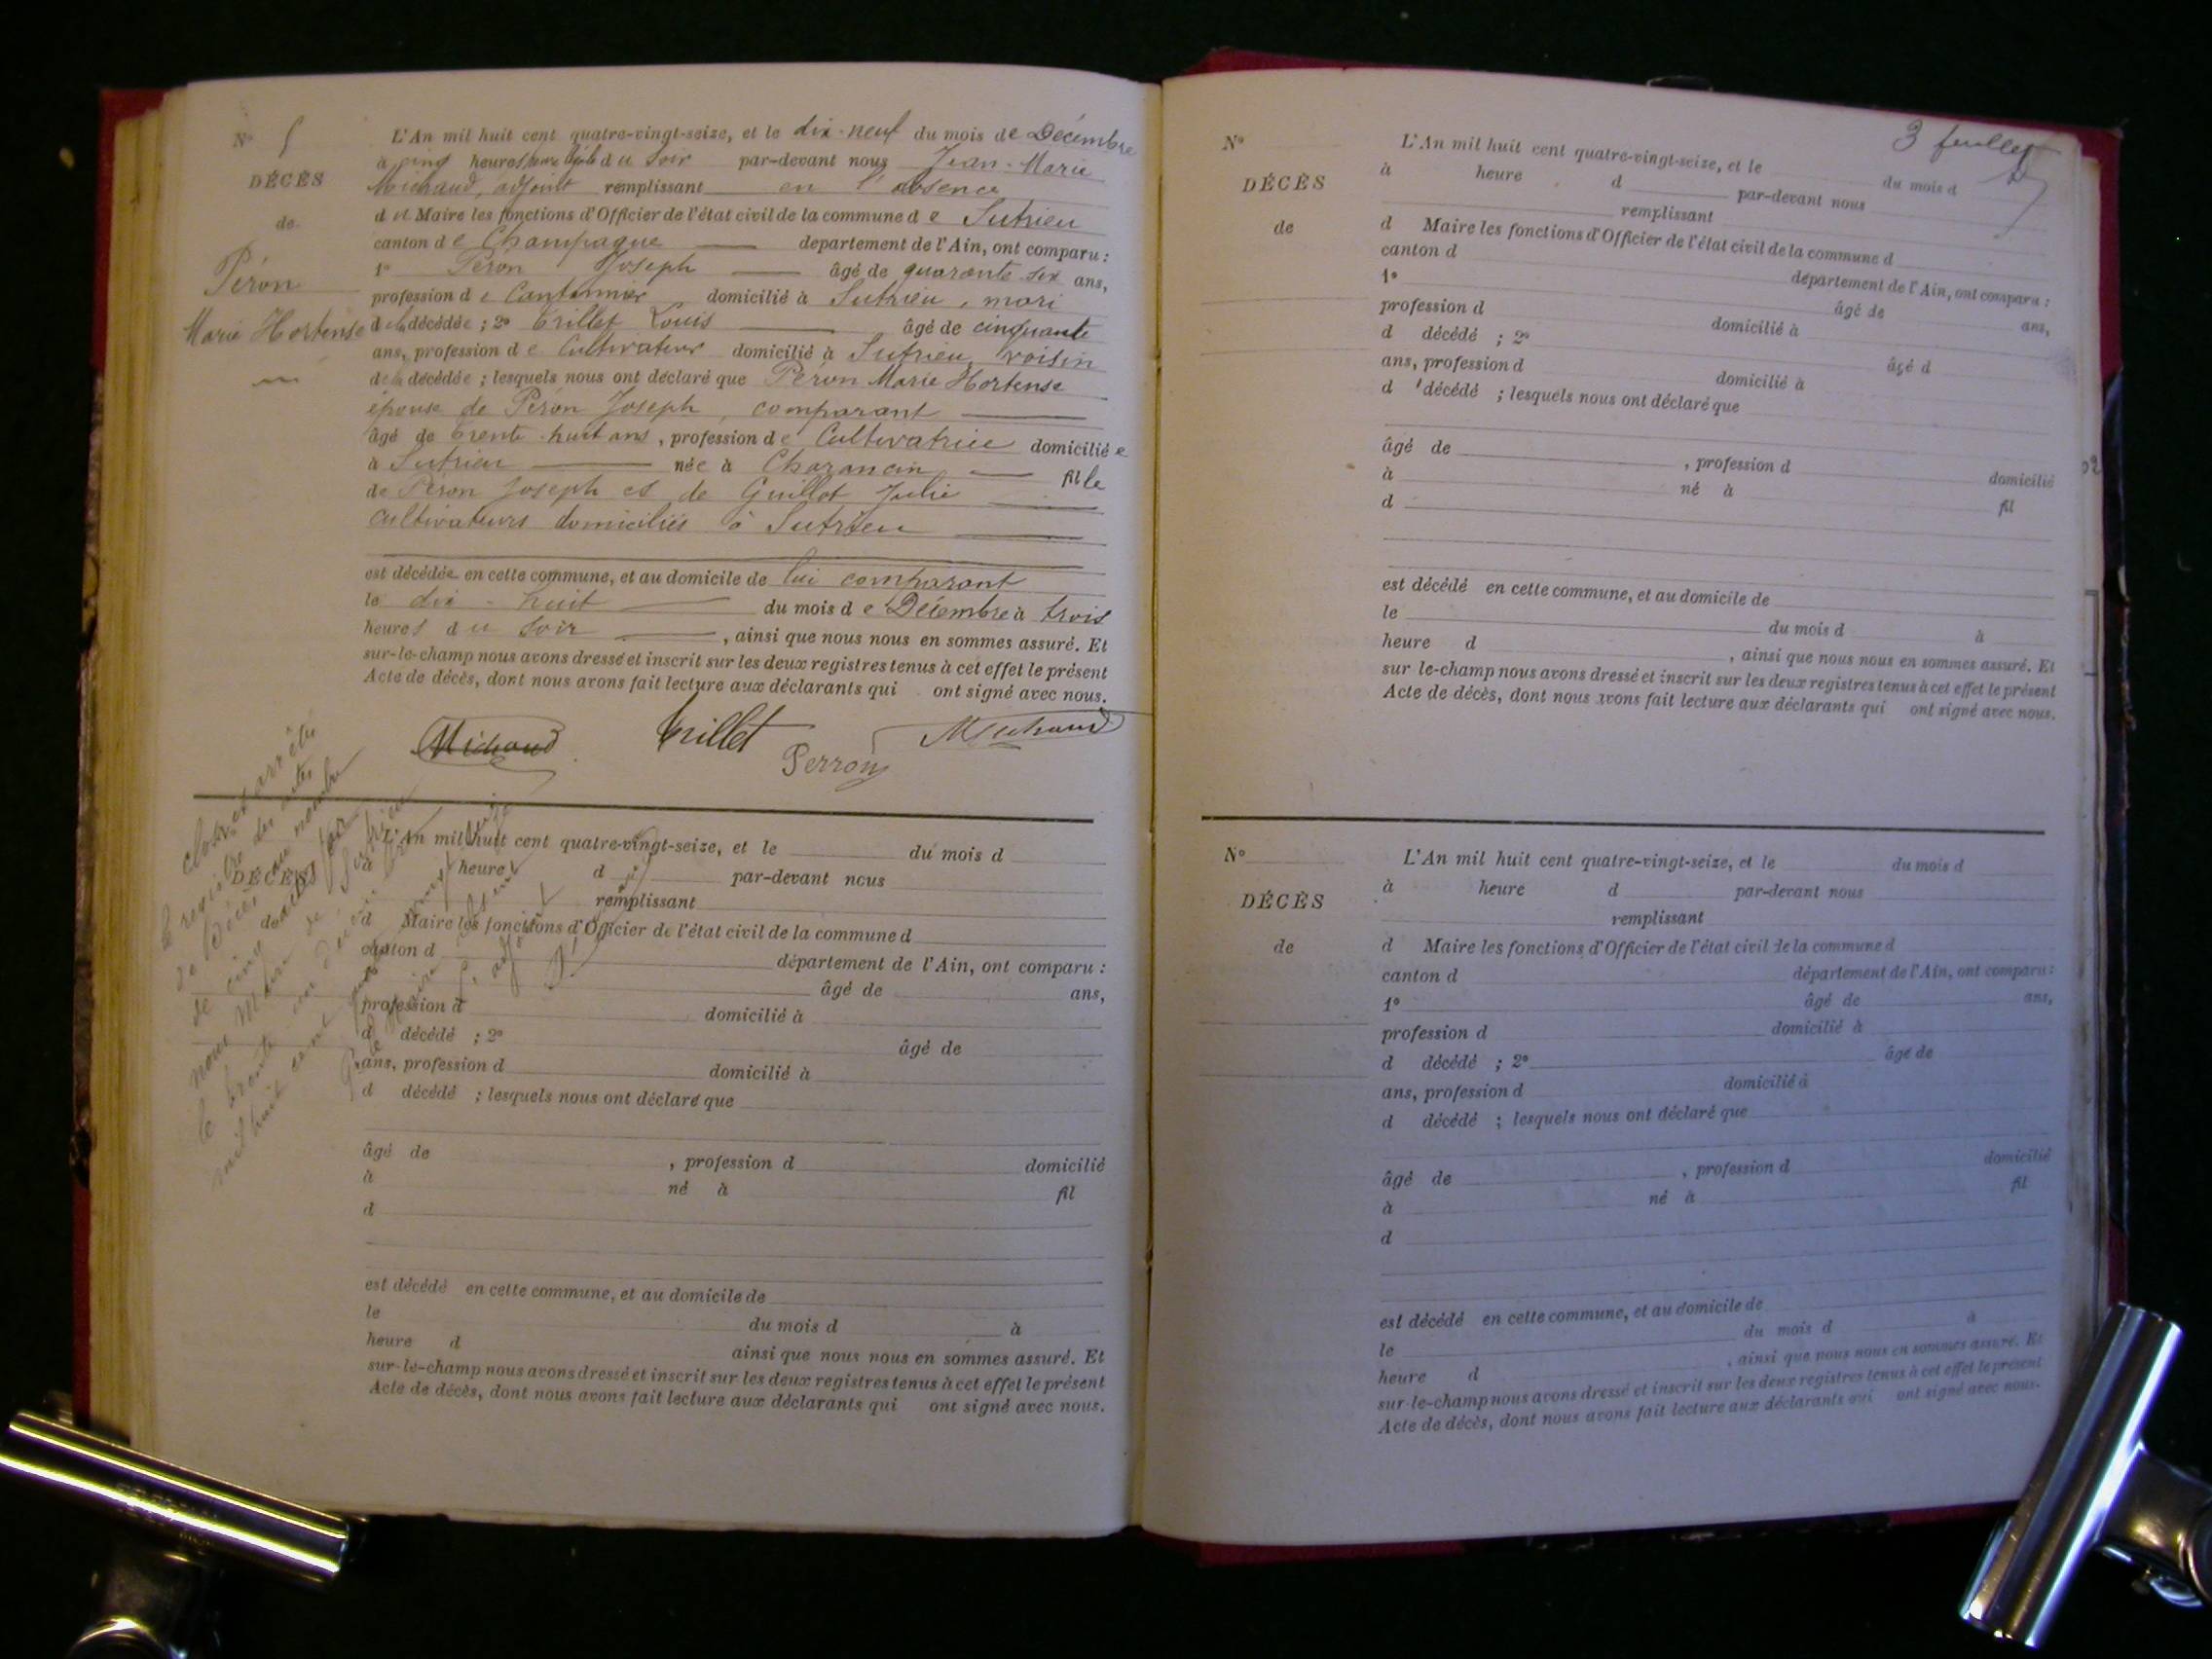 N° 5
DÉCÈS
de
Péron
Marie Hortense
L'An mil huit cent quatre-vingt-seize, et le dix-neuf du mois de Décembre
à cinq heures du Soir par-devant nous Jean-Marie
Michaud, adjoint remplissant en l'absence
du Maire les fonctions d'Officier de l'état civil de la commune de Sutrieu
canton de Champagne département de l'Ain, ont comparu :
1° Péron Joseph âgé de quarante six ans,
profession de Cantonnier domicilié à Sutrieu, mari
de la décédée ; 2° Trillet Louis âgé de cinquante
ans, profession de Cultivateur domicilié à Sutrieu, voisin
de la décédée ; lesquels nous ont déclaré que Péron Marie Hortense
épouse de Péron Joseph, comparant
âgé de trente-huit ans, profession de Cultivatrice domiciliée
à Sutrieu née à Charancin fille
de Péron Joseph et de Guillot Julie
cultivateurs domiciliés à Sutrieu
est décédée en cette commune, et au domicile de lui comparant
le dix-huit du mois de Décembre à trois
heures du Soir, ainsi que nous nous en sommes assuré. Et
sur-le-champ nous avons dressé et inscrit sur les deux registres tenus à cet effet le présent
Acte de décès, dont nous avons fait lecture aux déclarants qui ont signé avec nous.
Michaud Trillet Perron Michaud
Clos et arrêté
le registre des actes
de Décès au nombre
de cinq par
nous Maire de Sutrieu
le trente un Décembre
mil huit cent
DÉCÈS
de
L'An mil huit cent quatre-vingt-seize, et le du mois d
à heure d par-devant nous
remplissant
d Maire les fonctions d'Officier de l'état civil de la commune d
canton d département de l'Ain, ont comparu :
âgé de ans,
profession d domicilié à
d décédé ; 2° âgé de
ans, profession d domicilié à
d décédé ; lesquels nous ont déclaré que
âgé de , profession d domicilié
à né à fil
d
est décédé en cette commune, et au domicile de
le du mois d à
heure d ainsi que nous nous en sommes assuré. Et
sur-le-champ nous avons dressé et inscrit sur les deux registres tenus à cet effet le présent
Acte de décès, dont nous avons fait lecture aux déclarants qui ont signé avec nous.
3 feuillet
N°
DÉCÈS
de
L'An mil huit cent quatre-vingt-seize, et le du mois d
à heure d par-devant nous
remplissant
d Maire les fonctions d'Officier de l'état civil de la commune d
canton d département de l'Ain, ont comparu :
1° âgé de ans,
profession d domicilié à
d décédé ; 2° âgé d
ans, profession d domicilié à
d décédé ; lesquels nous ont déclaré que
âgé de , profession d domicilié
à né à fil
d
est décédé en cette commune, et au domicile de
le du mois d à
heure d , ainsi que nous nous en sommes assuré. Et
sur le-champ nous avons dressé et inscrit sur les deux registres tenus à cet effet le présent
Acte de décès, dont nous avons fait lecture aux déclarants qui ont signé avec nous.
N°
DÉCÈS
de
L'An mil huit cent quatre-vingt-seize, et le du mois d
à heure d par-devant nous
remplissant
d Maire les fonctions d'Officier de l'état civil de la commune d
canton d département de l'Ain, ont comparu :
1° âgé de ans,
profession d domicilié à
d décédé ; 2° âgé de
ans, profession d domicilié à
d décédé ; lesquels nous ont déclaré que
âgé de , profession d domicilié
à né à fil
d
est décédé en cette commune, et au domicile de
le du mois d à
heure d , ainsi que nous nous en sommes assuré. Et
sur-le-champ nous avons dressé et inscrit sur les deux registres tenus à cet effet le présent
Acte de décès, dont nous avons fait lecture aux déclarants qui ont signé avec nous.